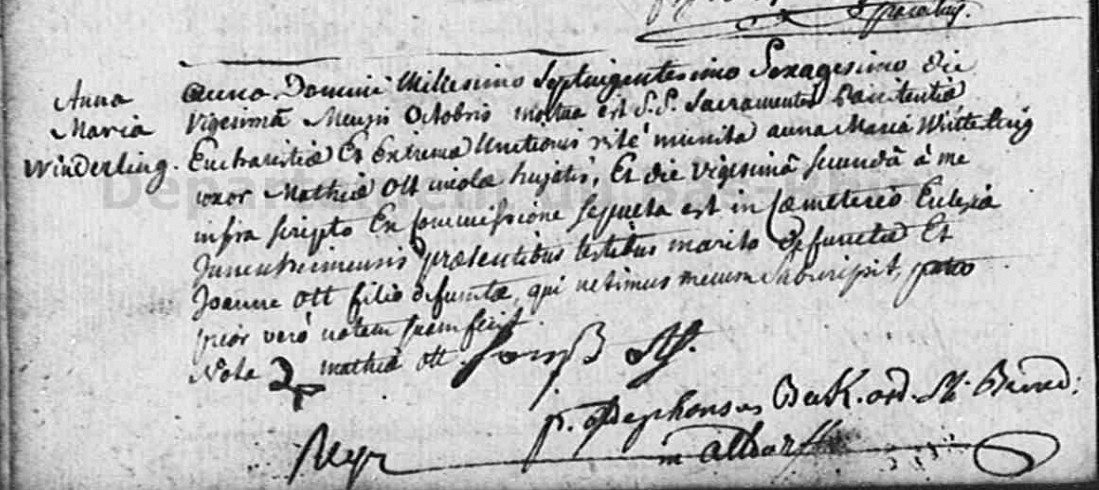 Anna
Maria
Winderling.
Anno Domini Millesimo Septuigentesimo Sexagesimo die
Vigesimâ Mensis Octobris mortua est S.S. Sacramentis Pœnitentiæ
Eucharistiæ Et Extremæ Unctionis rite munita anna Maria Witterling
uxor Mathiæ Ott incolæ hujatis, Et die vigesimâ secundâ à me
infra scripto Ex Commissione sepulta est in Cœmeterio Eclesiæ
præsentibus testibus marito defunctæ Et
Joanne Ott filio defunctæ, qui ultimus mecum subscripsit,
prior verò notam suam fecit.
Nota mathiæ ott.
p. Ord. St. Bened:
in altdorff